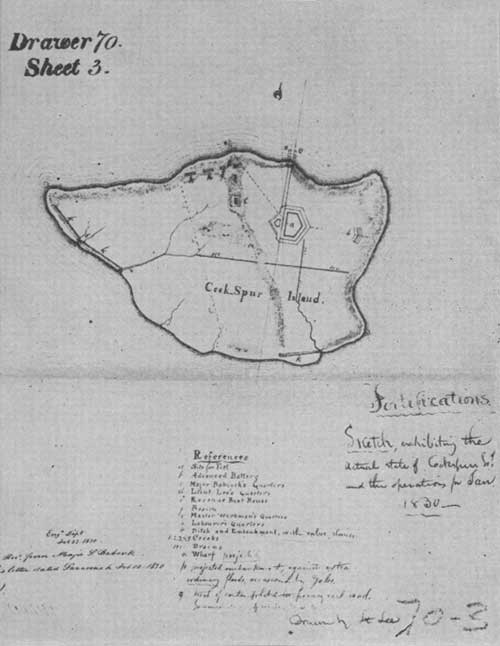 Drawer 70.
Sheet 3.
Cock Spur Island.
Fortifications.
Sketch, exhibiting the
actual state of Cockspur Isd
and the operations for Jan.
1830
References
Site for Fort
b Advanced Battery
c Major Babcock's Quarters
d Lieut. Lee's Quarters
e Revenue Boat House
g Master Workmen's Quarters
h Laborers' Quarters
Ditch and Embankment, with valve sluices
1.2.3.4.5 Creeks
m Drains
o Wharf projected
p projected embankment, against extra
ordinary floods, occasioned by Gales.
q
Engr Dept
Rec. from Major S. Babcock
letter dated Savannah 1830
Drawn by Lt Lee
70-3